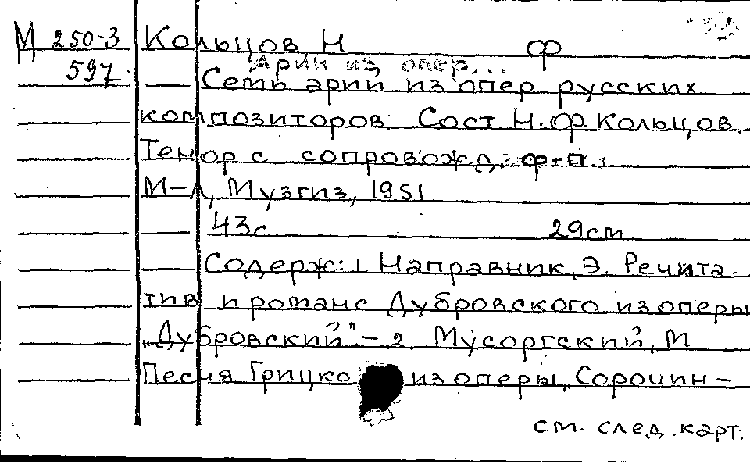 М 250-3 Кольцов, Н ф
597 Арии из опер...
Семь арий из опер русских
композиторов. Сост Н.ф Кольцов.
Тенор с сопровожд. ф-п.
М-Л, Музгиз, 1951
43с 29см
Содерж: 1 Направник, Э. Речита
тив и романс Дубровского из оперы
"Дубровский" - 2 Мусоргский, М
Песня Грицко из оперы Сорочин-
см. след. карт.